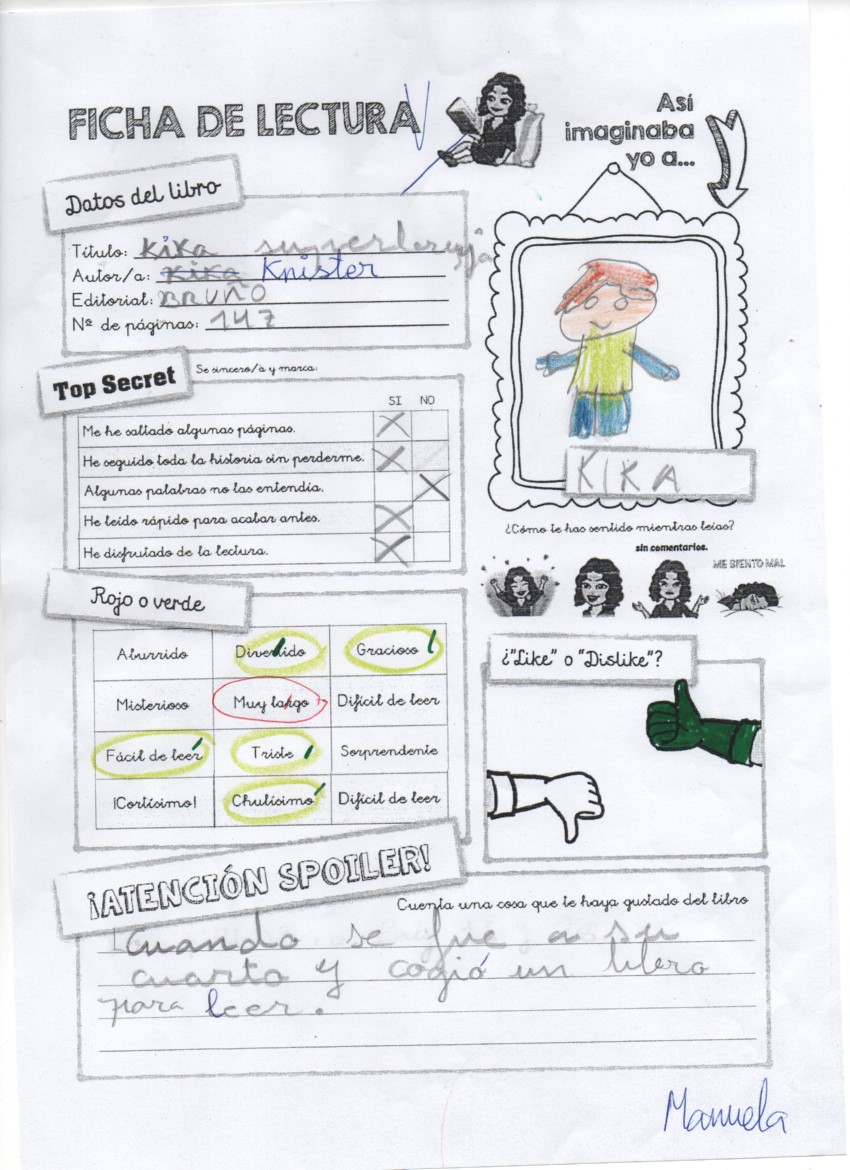 FICHA DE LECTURA
Así
imaginaba
yo a...
Datos del libro
Título: Kika superbruja
Autor/a: Kika Knister
Editorial: BRUÑO
Nº de páginas: 147
Top Secret
Se sincero/a y marca:
SI NO
Me he saltado algunas páginas.
He seguido toda la historia sin perderme.
Algunas palabras no las entendía.
He leído rápido para acabar antes.
He disfrutado de la lectura.
KIKA
¿Cómo te has sentido mientras leías?
sin comentarios.
ME SIENTO MAL
Rojo o verde
Aburrido Divertido Gracioso
Misterioso Muy largo Difícil de leer
Fácil de leer Triste Sorprendente
¡Cortísimo! Chulísimo Difícil de leer
¿"Like" o "Dislike"?
¡ATENCIÓN SPOILER!
Cuenta una cosa que te haya gustado del libro
Cuando se fue a su
cuarto y cogió un libro
para leer.
Manuela